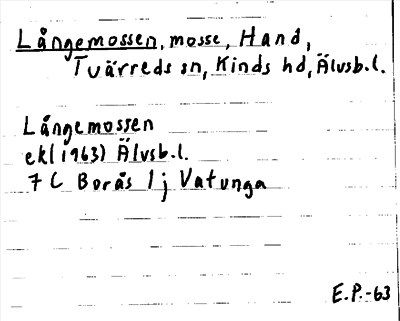 Långemossen, mosse, Hand,
Tvärreds sn, Kinds hd, Älvsb.l.
Långemossen
ekl(1963) Älvsb.l.
7 C Borås 1 j Vatunga
E.P.-63